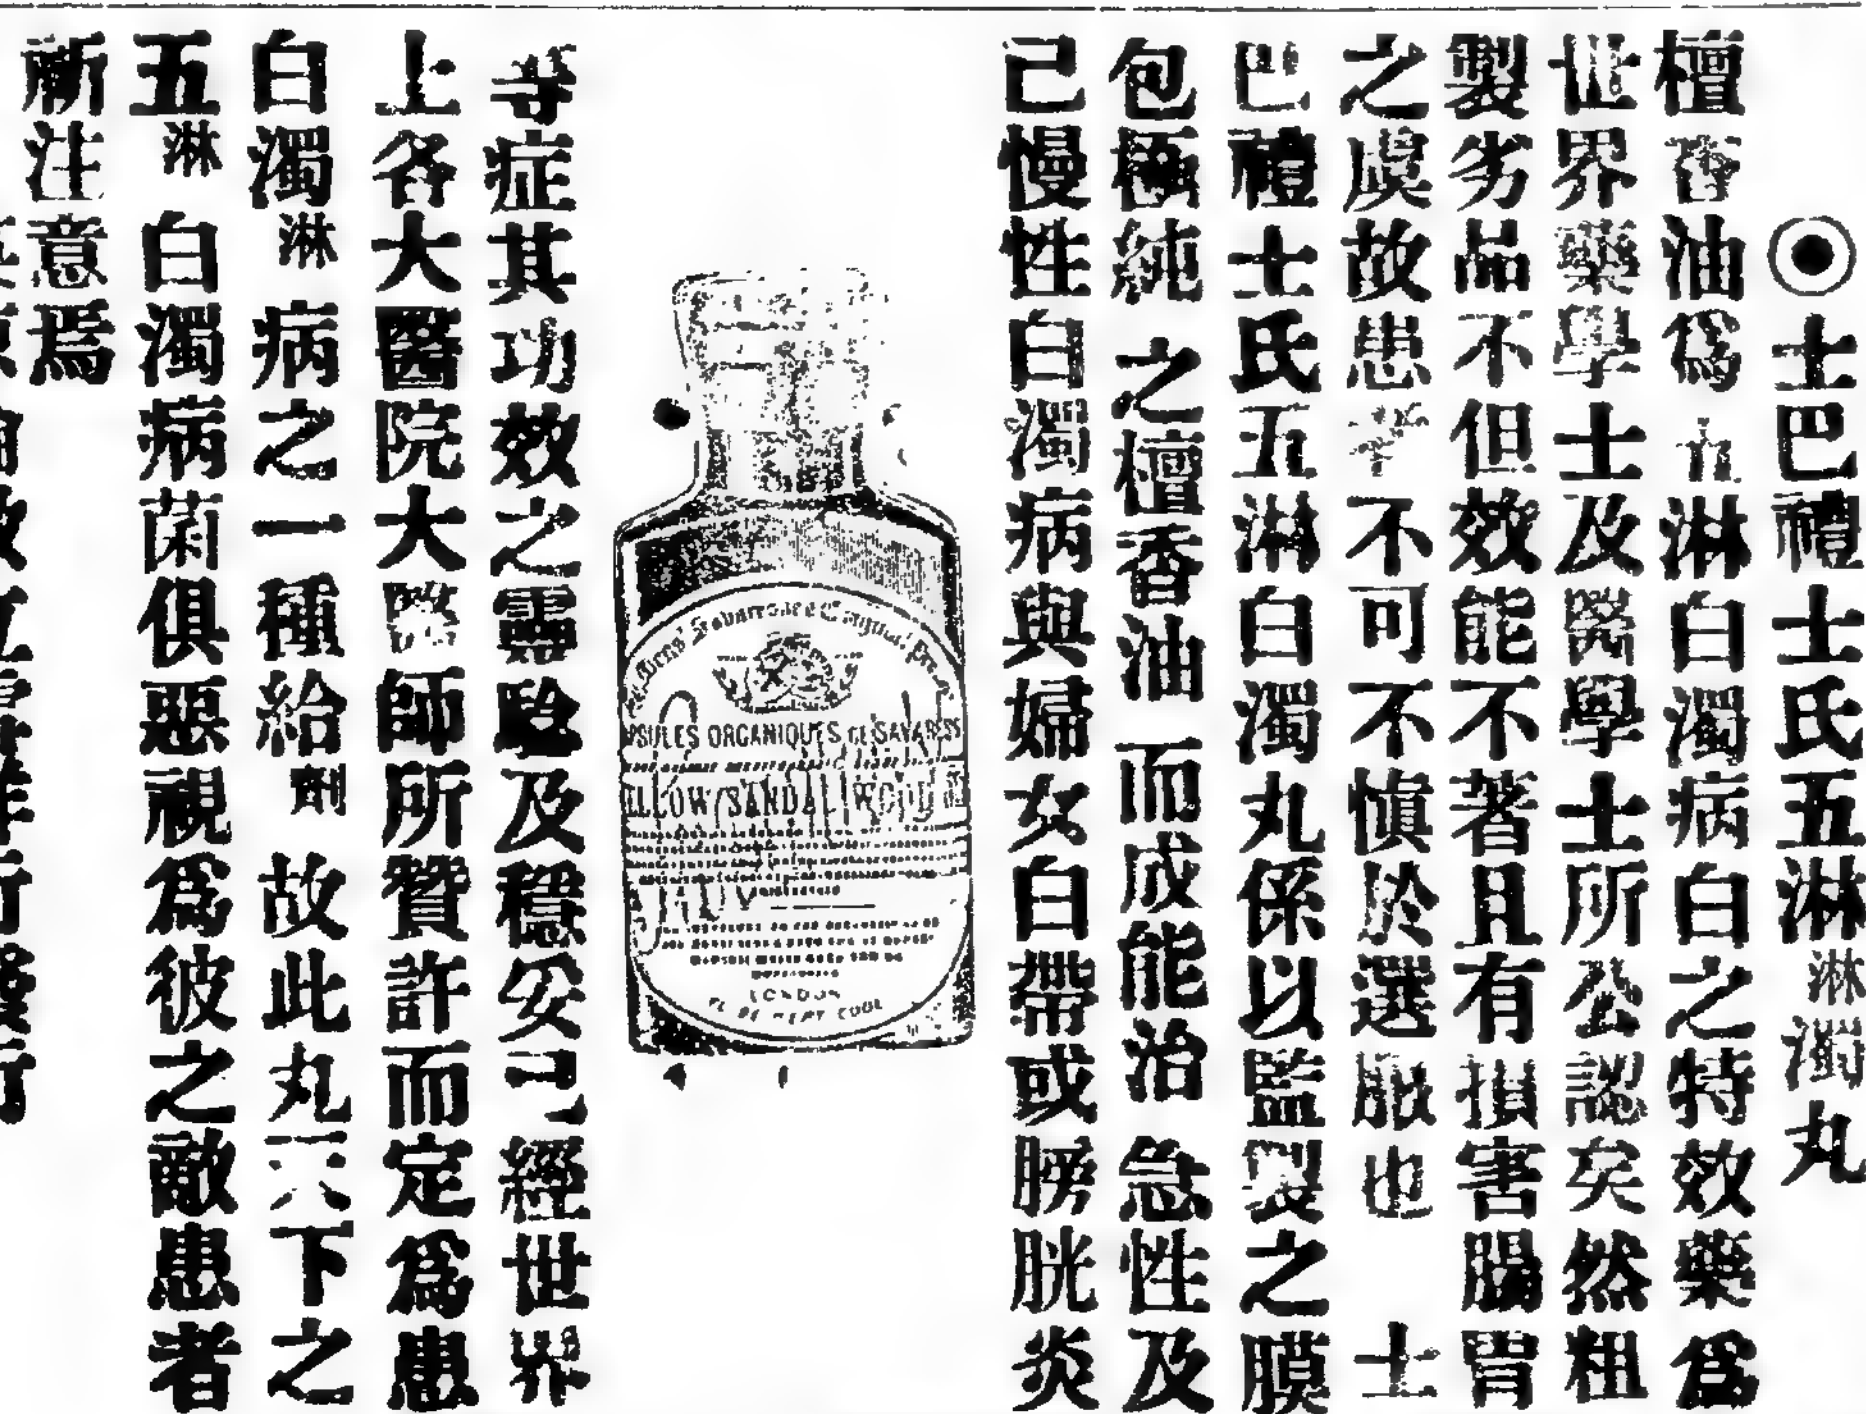 ◉士巴禮士氏五淋淋濁丸
檀香油爲五淋白濁病白之特效藥爲
世界藥學士及醫學士所公認矣然粗
製劣品不但效能不著且有損害腸胃
之虞故患者不可不慎於選服也 士
巴禮士氏五淋白濁丸係以監製之膜
包極純之檀香油而成能治急性及
己慢性白濁病與婦女白帶或膀胱炎
CAPSULES ORGANIQUES DE SAVARESSE
YELLOW SANDAL WOOD OIL
LONDON
等症其功效之靈驗及穩妥已經世界
上各大醫院大醫師所贊許而定爲患
白濁淋病之一種給劑故此丸一入下之
五淋白濁病菌俱惡視爲彼之敵患者
注意焉